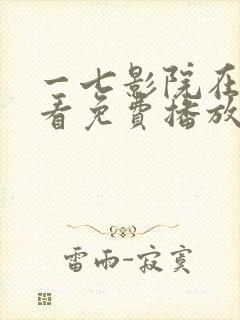 一七影院在
看免費播放
雷雨-寂寞